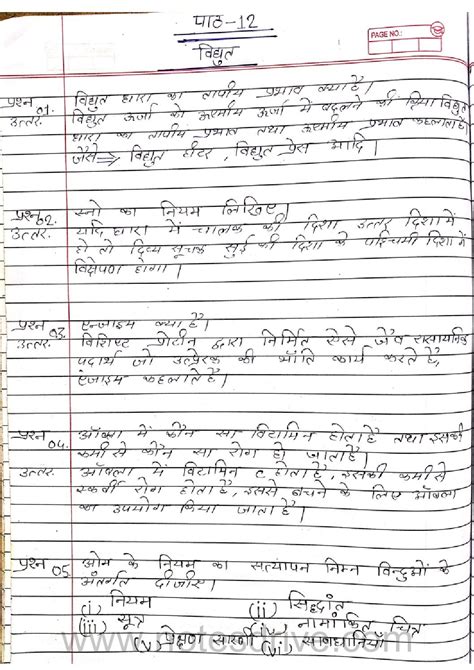 पाठ-12
PAGE NO.:
विद्युत
प्रश्न 01. विद्युत धारा का तापीय प्रभाव क्या है।
उत्तर. विद्युत ऊर्जा को ऊष्मीय ऊर्जा में बदलने की क्रिया विद्युत
धारा का तापीय प्रभाव तथा ऊष्मीय प्रभाव कहलाता है
जैसे⇒ विद्युत हीटर, विद्युत प्रेस आदि।
प्रश्न 02. स्नो का नियम लिखिए।
उत्तर. यदि धारा में चालक की दिशा उत्तर दिशा में
हो तो दिव्य सूचक सुई की दिशा के पश्चिमी दिशा में
विक्षेपण होगा।
प्रश्न 03. एन्जाइम क्या है।
उत्तर. विशिष्ट प्रोटीन द्वारा निर्मित ऐसे जैव रासायनिक
पदार्थ जो उत्प्रेरक की भाँति कार्य करते है,
एंजाइम कहलाते है।
प्रश्न 04. आँवला में कौन सा विटामिन होता है तथा इसकी
कमी से कौन सा रोग हो जाता है।
उत्तर. आँवला में विटामिन c होता है, इसकी कमी से
स्कर्वी रोग होता है, इससे बचने के लिए आँवला
का उपयोग किया जाता है।
प्रश्न 05. ओम के नियम का सत्यापन निम्न विन्दुओं के
अंतर्गत दीजीए।
(i) नियम (ii) सिद्धांत
(iii) सूत्र (iv) नामांकित चित्र
(v) प्रेक्षण सारणी (vi) सावधानियाँ